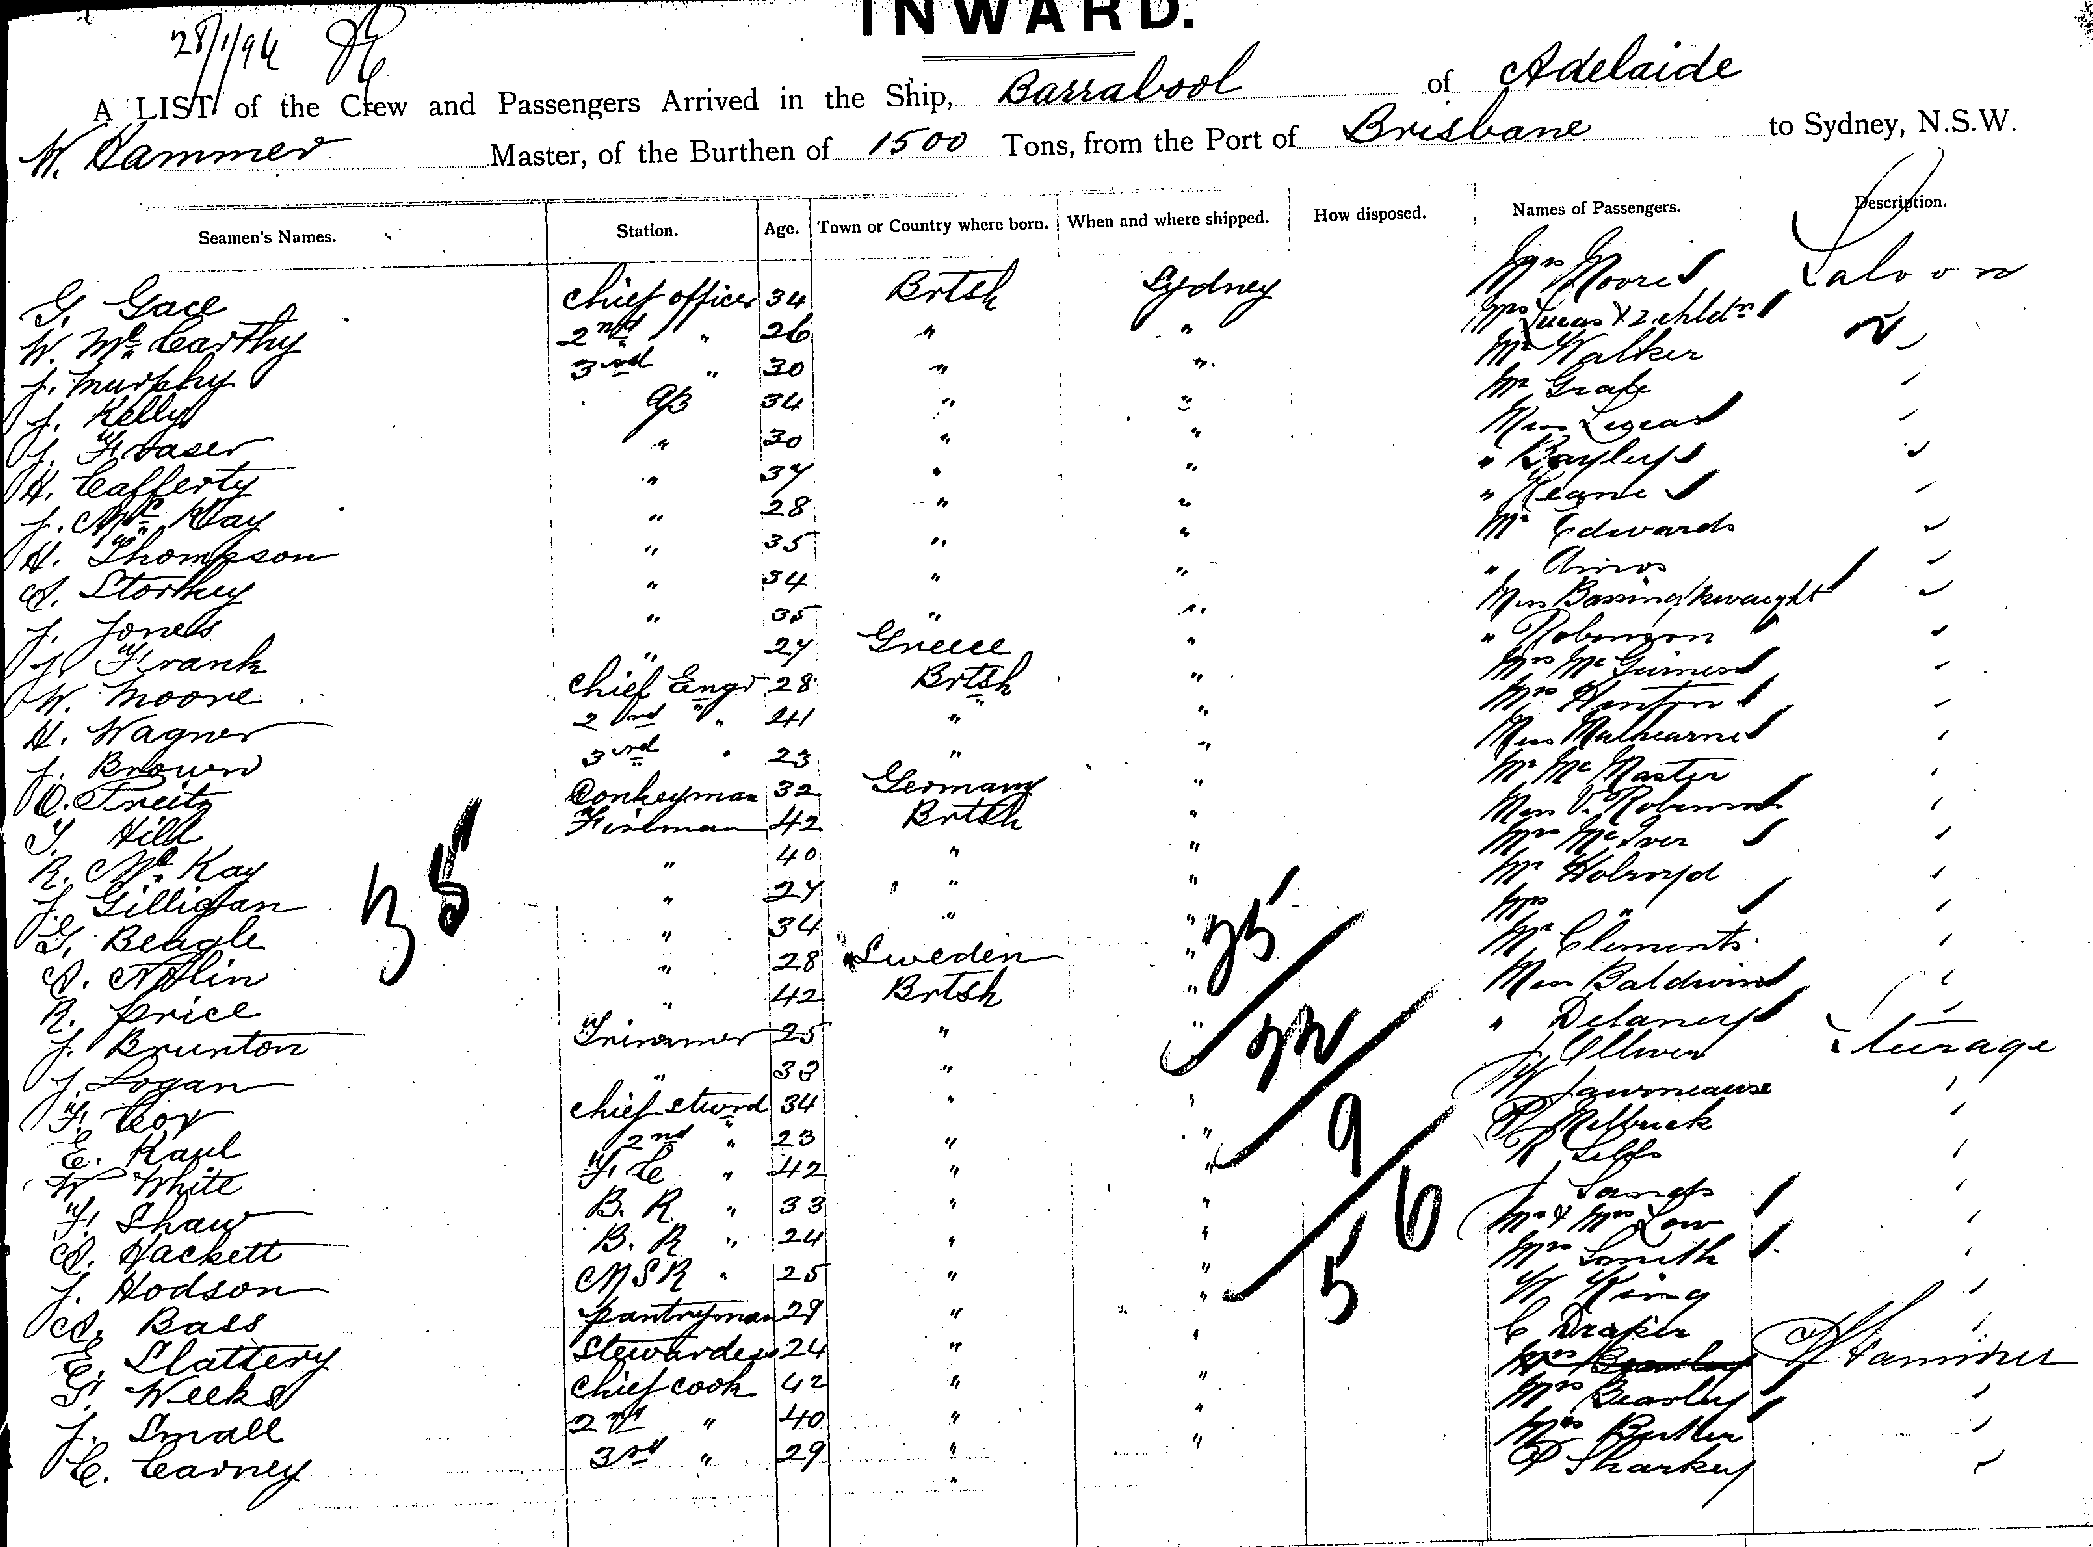 INWARD.
28/1/96
A LIST of the Crew and Passengers Arrived in the Ship, Barrabool of Adelaide
W. Hammer Master, of the Burthen of 1500 Tons, from the Port of Brisbane to Sydney, N.S.W.
Seamen's Names. Station. Age. Town or Country where born. When and where shipped. How disposed. Names of Passengers. Description.
G. Gace chief officer 34 Brtsh Sydney Mrs Moore Saloon
W. McCarthy 2nd " 26 " " Mrs Lucas & 2 chldrn "
J. Murphy 3rd " 30 " " Mr Walker
J. Kelly AB 34 " " Mr
J. Fraser " 30 " " Miss
H. Cafferty " 37 " " " Bayley
J. McKay " 28 " " " Keane
H. Thompson " 35 " " Mr Edwards
A. Storkey " 34 " " "
J. Jones " 35 " " Miss
J. Frank " 27 Greece " " Robinson
W. Moore Chief Engr 28 Brtsh " Mrs
H. Wagner 2nd " 41 " " Mrs
J. Brown 3rd " 23 " " Miss
C. Treitz Donkeyman 32 Germany " Mr McMaster
T. Hill Fireman 42 Brtsh " Miss V. Robinson
R. McKay " 40 " " Mrs McIver
J. Gilligan " 27 " " Mr Holroyd
G. Beagle " 34 " " Mrs "
A. Nolin " 28 Sweden " Mr Clements
R. Price " 42 Brtsh " Miss Baldwin
J. Brunton Trimmer 25 " " " Delaney
J. Logan " 33 " " J Steerage
F. Cox chief stwrd 34 " " W
E. Kaul 2nd " 23 " "
W White F. C " 42 " "
F. Shaw B. R " 33 " " J
A. Hackett B. R " 24 " " Mr & Mrs Low
J. Hodson M S R " 25 " " Mrs Smith
A. Bass pantryman 29 " " W King
E. Slattery Stewardess 24 " " C Draper
G. Weeks chief cook 42 " " W Hammer
J. Small 2nd " 40 " " Mrs Beasley
C. Carney 3rd " 29 " " Mrs Butler
P Sharkey
38
35
22
9
6
5